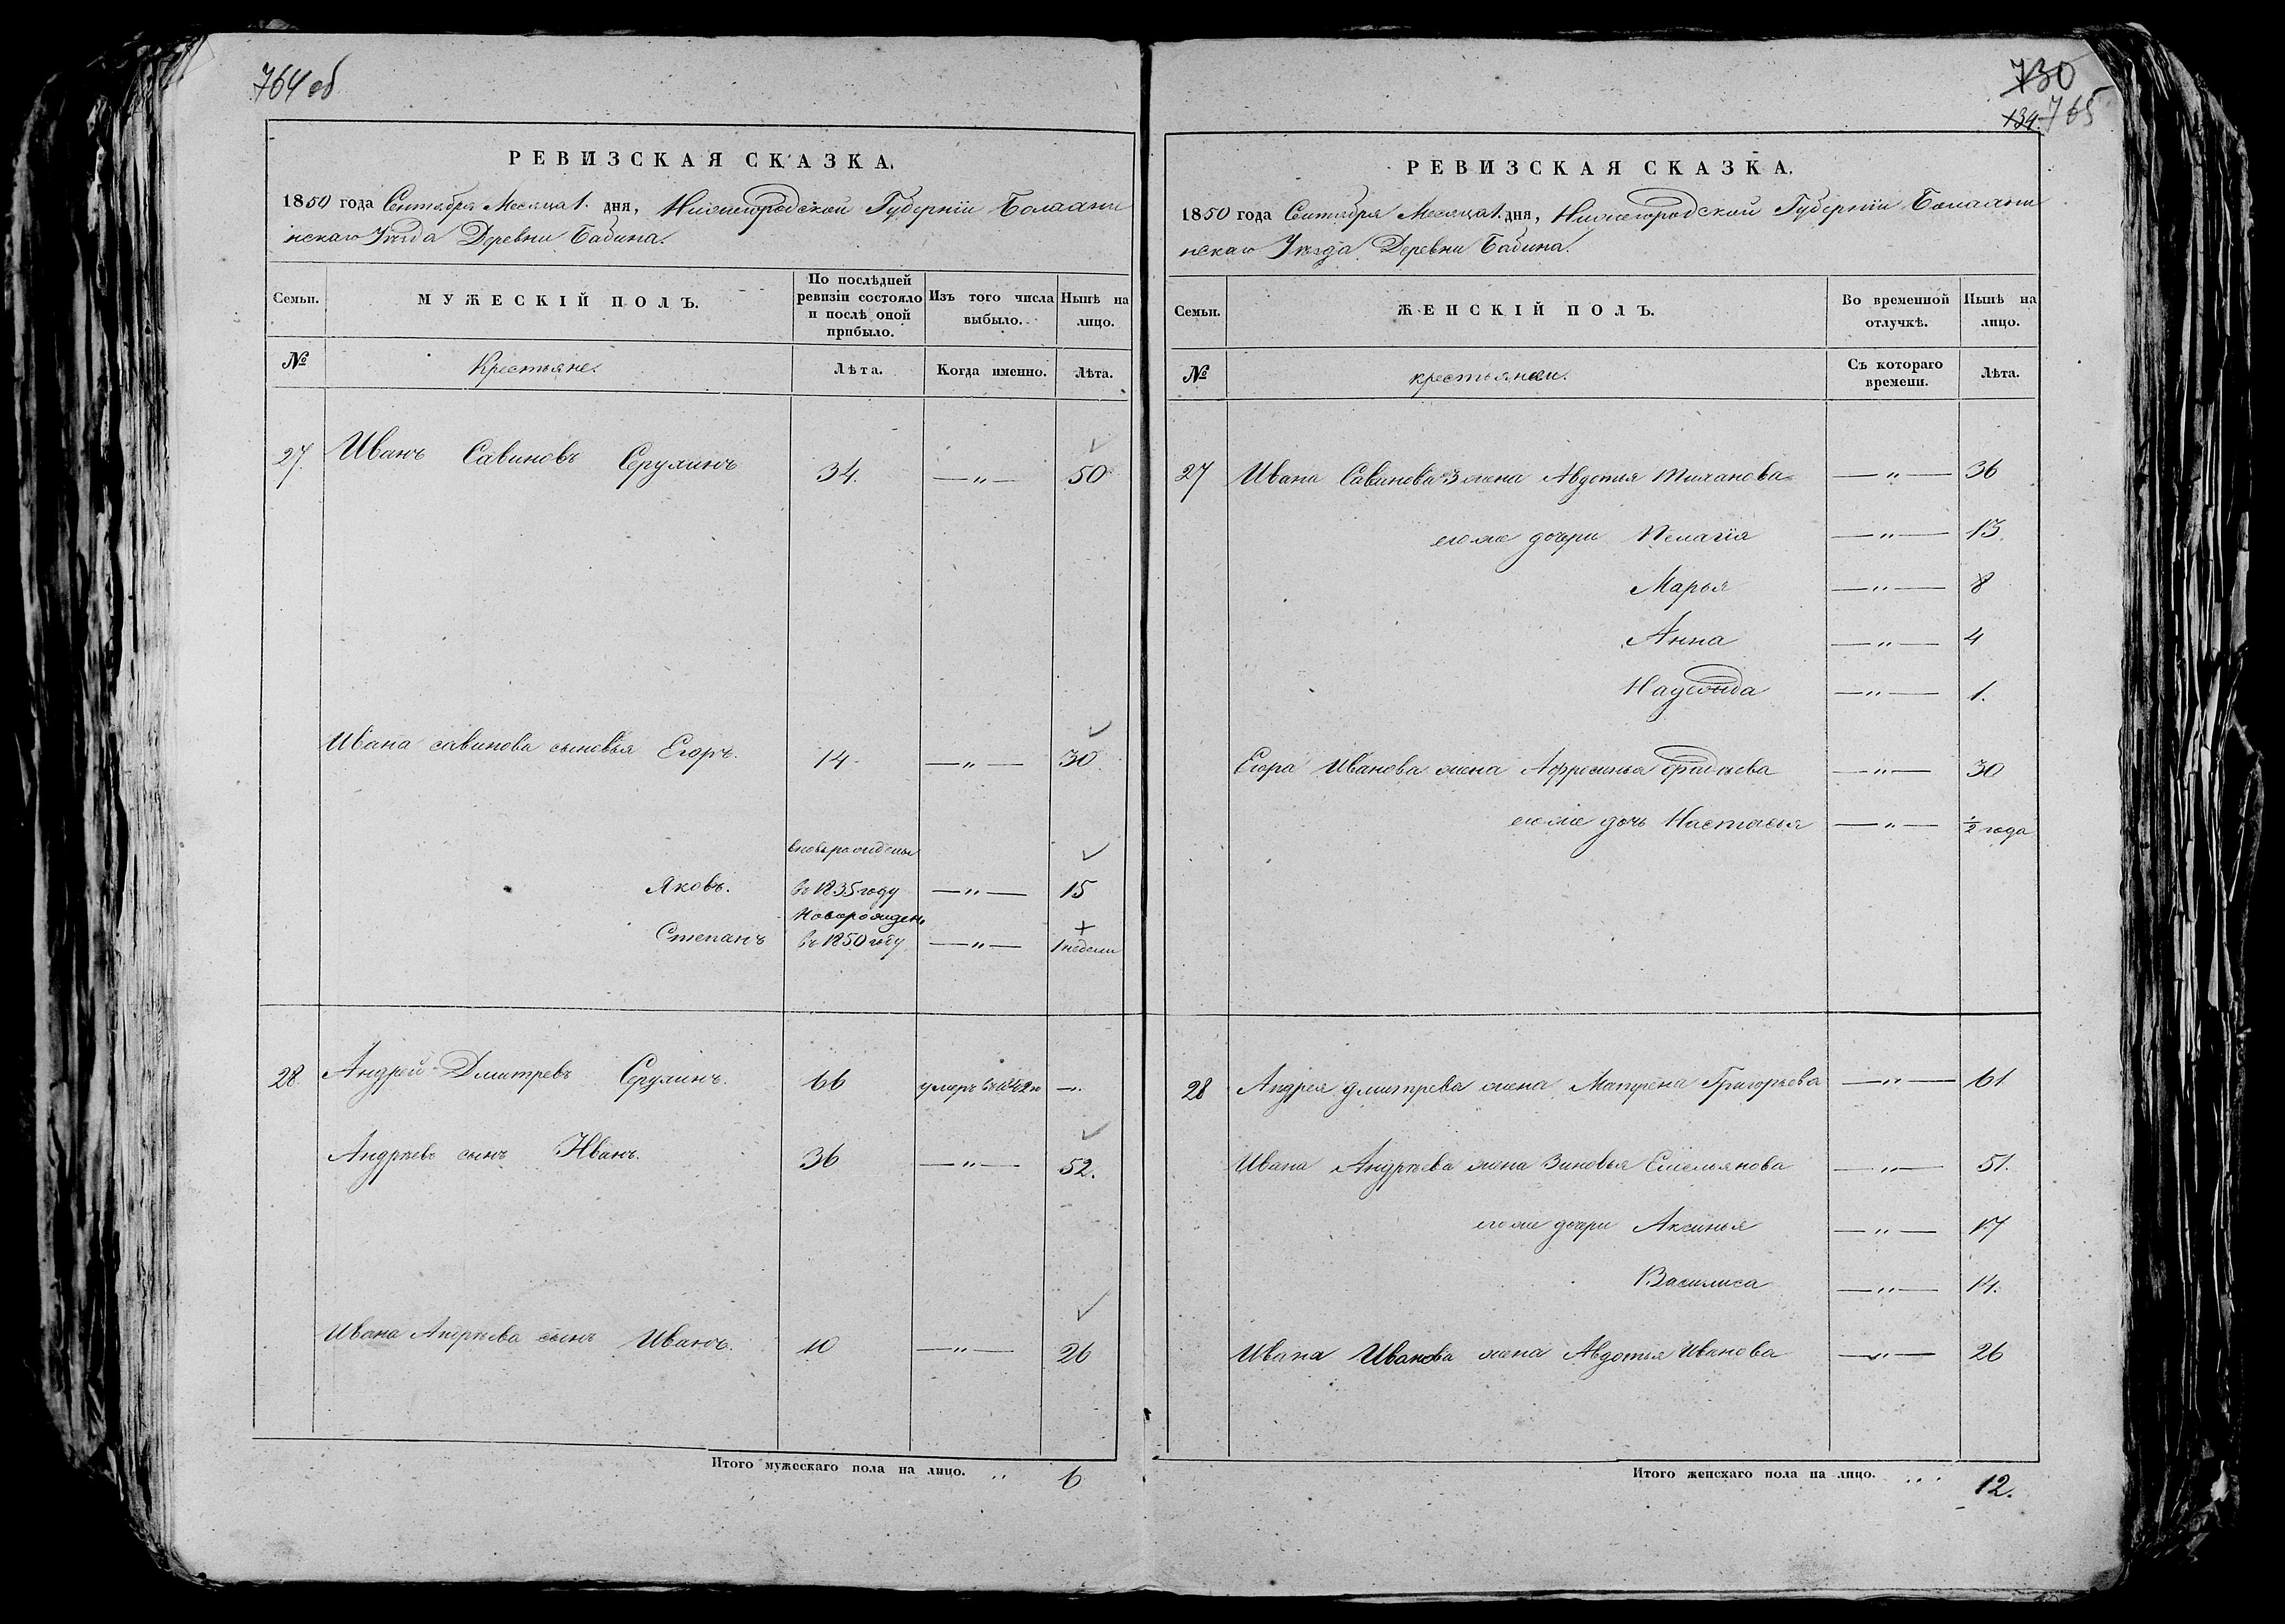 764 об
РЕВИЗСКАЯ СКАЗКА.
1850 года Сентября Месяца 1. дня, Нижегородской Губерніи Балахни
нскаго Уезда Деревни Бабина.
Семьи.
МУЖЕСКІЙ ПОЛЪ.
По послѣдней ревизіи состояло и послѣ оной прибыло.
Изъ того числа выбыло.
Нынѣ на лицо.
№
Крестьяне.
Лѣта.
Когда именно.
Лѣта.
27. Иванъ Савиновъ 34. —„— 50
Ивана савинова сыновья Егоръ. 14 —„— 30
вновьрожденъ
Яковъ. въ 1835 году —„— 15
Новорожден.
Степанъ въ 1850 году —„— 1 недели
28. Андрей Дмитревъ 66 умеръ въ —
Андреевъ сынъ Иванъ. 36 —„— 52.
Ивана Андреева сынъ Иванъ. 10 —„— 26
Итого мужескаго пола на лицо. .. 6
730
134. 765
РЕВИЗСКАЯ СКАЗКА.
1850 года Сентября Месяца 1. дня, Нижегородской Губерніи Балахни
нскаго Уезда Деревни Бабина.
Семьи.
ЖЕНСКІЙ ПОЛЪ.
Во временной отлучкѣ.
Нынѣ на лицо.
№
крестьянки.
Съ котораго времени.
Лѣта.
27 Ивана Савинова жена Авдотья —„— 36
его же дочери Пелагія —„— 13.
Марья —„— 8
Анна —„— 4
—„— 1.
Егора Иванова жена —„— 30
его же дочь Настасья —„— ½ года
28 Андрея дмитрева жена Матрена Григорьева —„— 61
Ивана Андреева жена Зиновья Емельянова —„— 51.
его же дочери Аксинья —„— 17
Василиса —„— 14.
Ивана Иванова жена Авдотья Иванова —„— 26
Итого женскаго пола на лицо. ... 12.